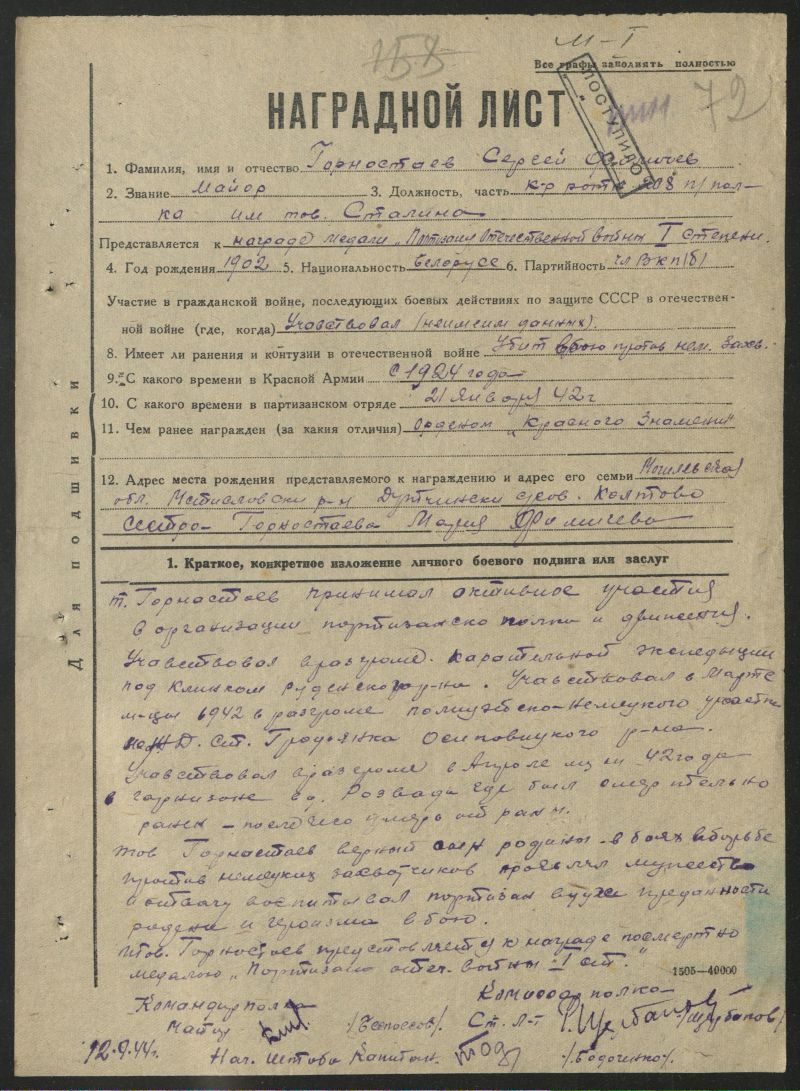 М-I
158
Все графы заполнять полностью
ПОСТУПИЛО
72
НАГРАДНОЙ ЛИСТ
1. Фамилия, имя и отчество Горностаев Сергей
2. Звание Майор 3. Должность, часть к-р роты 208 п/пол-
ка им тов. Сталина
Представляется к награде медали „Партизан Отечественной войны I степени.
4. Год рождения 1902 5. Национальность Белорусс 6. Партийность чл ВКП(б)
Участие в гражданской войне, последующих боевых действиях по защите СССР в отечествен-
ной войне (где, когда) Учавствовал (неимеим данных).
8. Имеет ли ранения и контузии в отечественной войне Убит в бою против нем. захв.
9. С какого времени в Красной Армии С 1924 года
10. С какого времени в партизанском отряде 21 Января 42 г
11. Чем ранее награжден (за какия отличия) Орденом „Красного Знамени"
12. Адрес места рождения представляемого к награждению и адрес его семьи Могилевская
обл. Мстиславски р-н дер. Колтово
сестра Горностаева Мария
Для подшивки
1. Краткое, конкретное изложение личного боевого подвига или заслуг
т. Горностаев принимал активное участия
в организации партизанско полка и движения.
Учавствовал в разгроме карательной экспедиции
под Клинком Руденского р-на. Учавствовал в Марте
м-цы 1942 в разгроме полицейско-немецкого участка
на ЖД. ст. Гродзянка Осиповицкого р-на.
Учавствовал в разгроме в Апреле м-ц 42 года
гарнизона в д. Розвада где был смертельно
ранен – после чего умер от ран.
тов Горностаев верный сын родины – в боях в борьбе
против немецких захватчиков проевлял мужество
и отвагу воспитывал партизан в духе преданности
родени и героизма в бою.
тов. Горностаев представляется к награде посмертно
медалью „Партизано отеч. войны I ст."
1505—40000
Командир полка
Майор /Беспоясов/.
Комиссар полка
Ст. Л-т
12.9.44г.
Нач. штаба Капитан